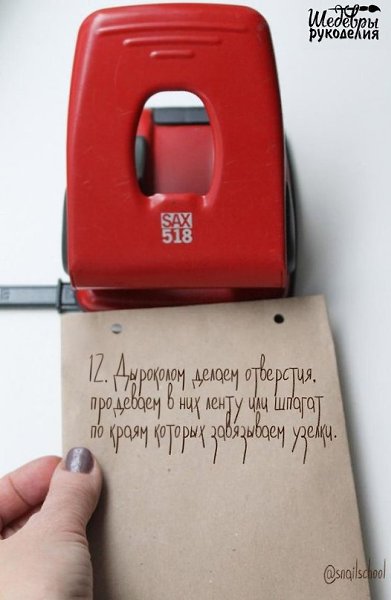 Шедевры
рукоделия
SAX
518
12. Дыроколом делаем отверстия,
продеваем в них ленту или шпагат
по краям которых завязываем узелки.
@snailschool